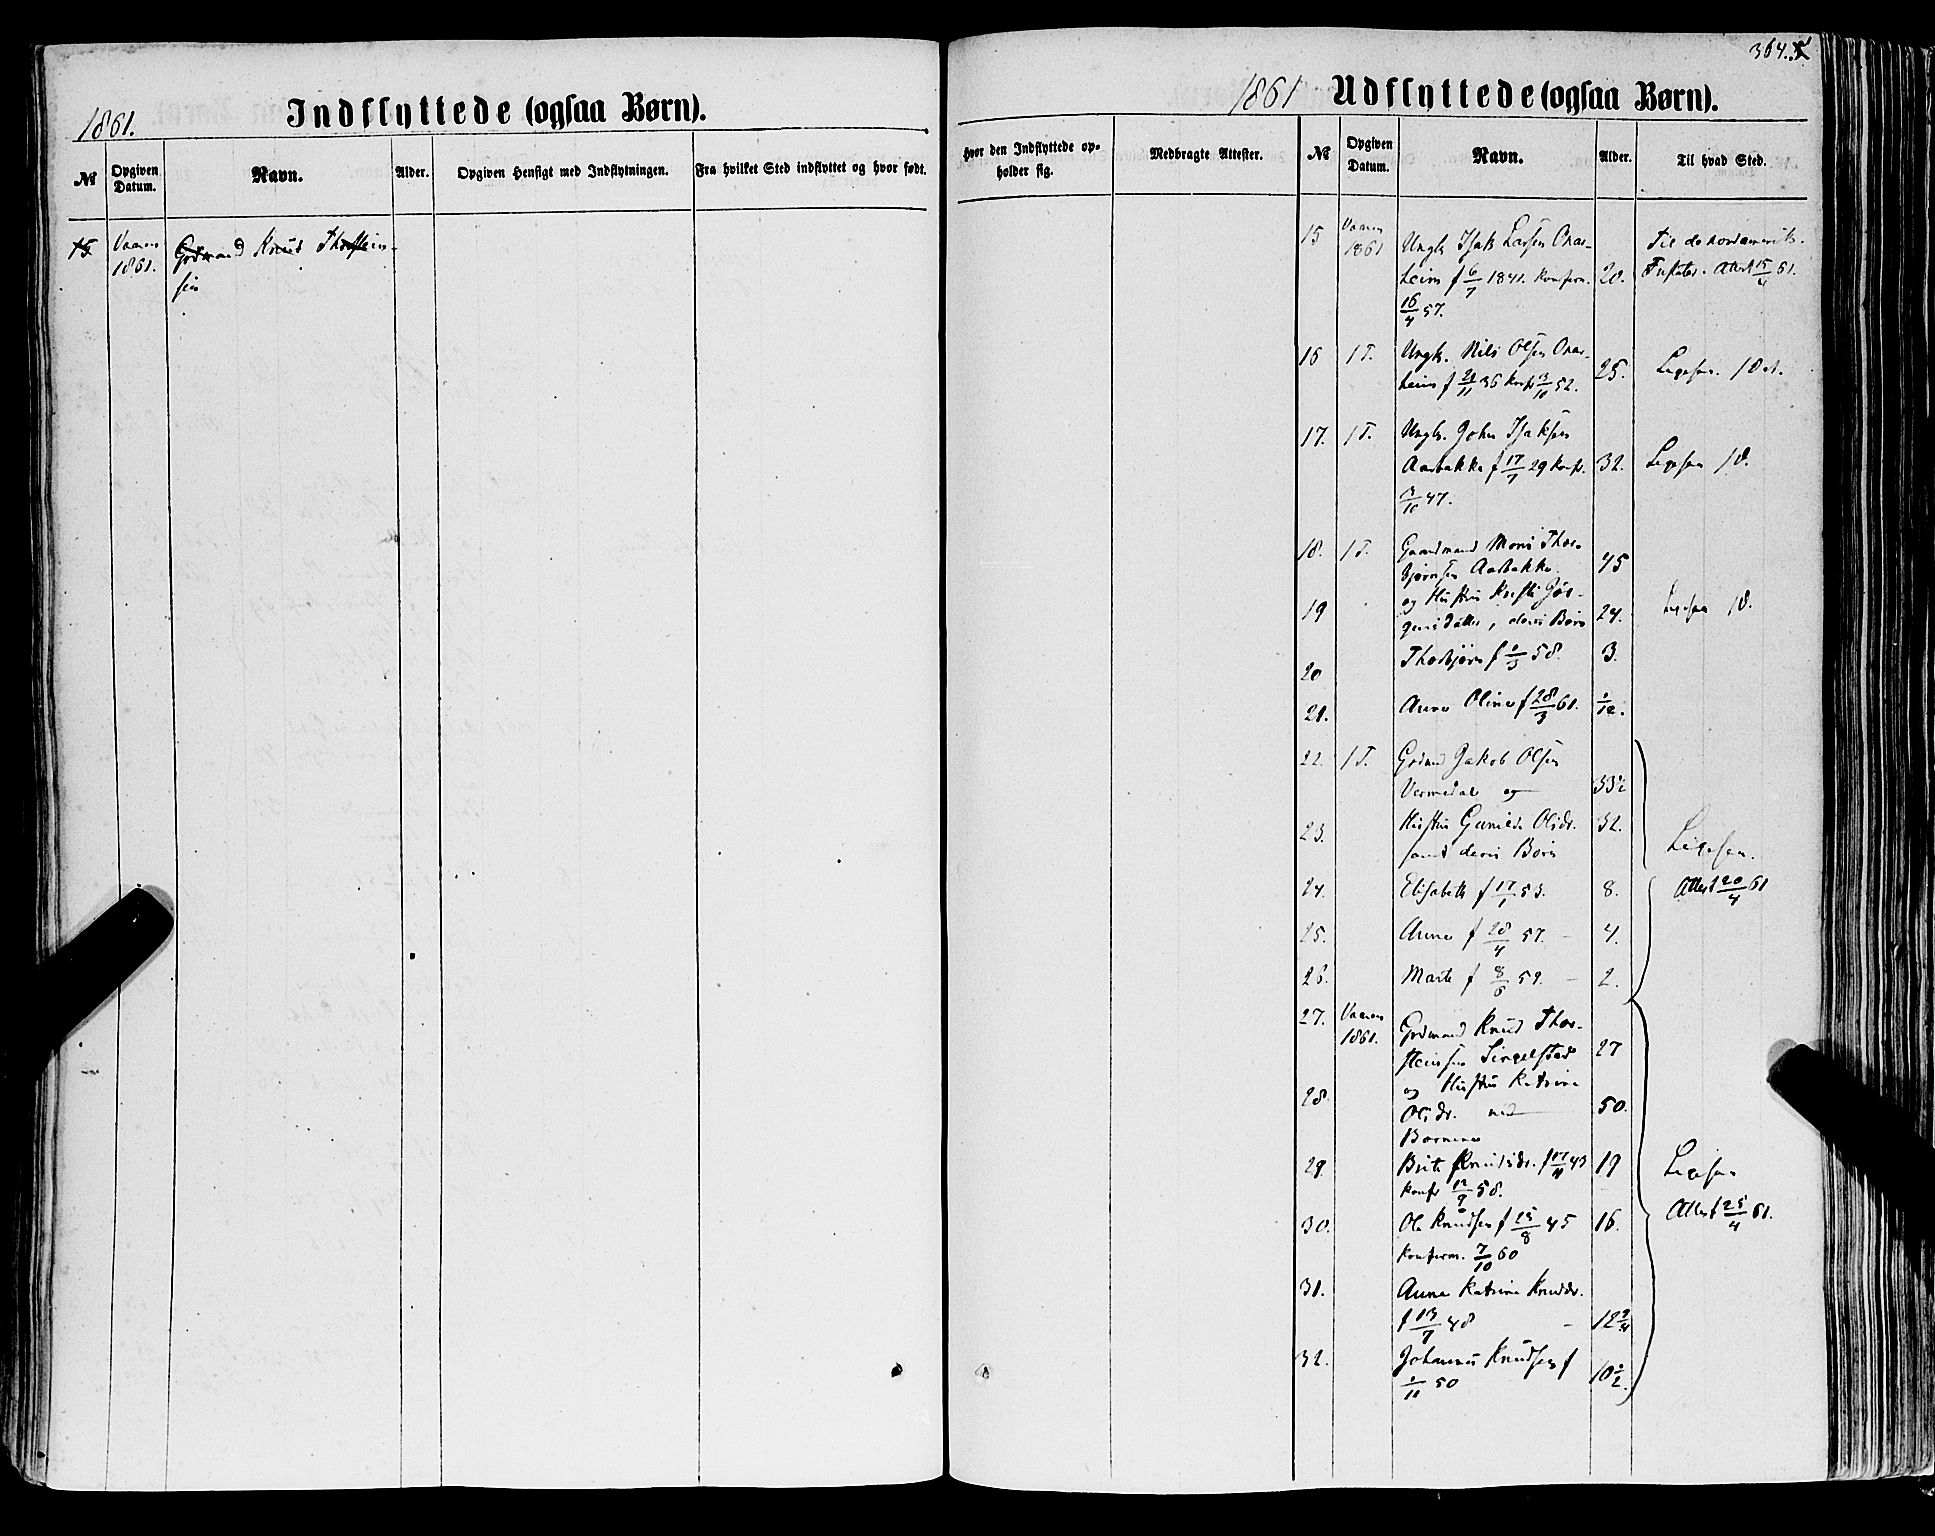 364.
1861.
Indflyttede (ogsaa Børn).
№
Opgiven Datum.
Navn.
Alder.
Opgiven Hensigt med Indflytningen.
Fra hvilket Sted indflyttet og hvor født.
15 Vaaren Grdmand Knud Thorstein-
1861. sen
1861 Udflyttede (ogsaa Børn).
hvor den Indflyttede op-
holder sig.
Medbragte Attester.
№
Opgiven Datum.
Navn.
Alder.
Til hvad Sted.
15 Vaaren 1861 Ungk. Isak Larsen Onar-
heim f 6/7 1841. konfirm. 20.
16/4 57.
Til de nordamerik.
Fristater. Attest 15/4 61.
16 I T. Ungk. Nils Olsen Onar-
heim f 21/11 36 konf 3/10 52. 25. Ligesaa.
17. I T. Ungk. John Isaksen
Aarbakke f 17/7 29 konf. 32. Ligesaa
3/10 47.
18. I T. Gaardmand Mons Thor-
bjørnsen Aarbakke 45
19 og Hustru Kirsti Jør-
gensdatter, deres Børn 24. Ligesaa
20 Thorbjørn f 1/3 58. 3.
21. Anna Oline f 28/3 61. 1/12.
22. I T. Grdmd Jakob Olsen
Vermedal og 33 1/2
23. Hustru Gunilde Olsdr. 32.
samt deres Børn
Ligesaa.
24. Elisabeth f 17/1 53. 8. Attest 20/4 61
25. Anna f 28/4 57. – 4.
26. Marte f 8/6 59. – 2.
27. Vaaren 1861. Grdmand Knud Thor-
steinsen Singelstad 27
28. og Hustru Katrina
Olsdr. med 50.
Børnene
29. Brite Knudsdr. f 17/4 43 17 Ligesaa
konf 12/9 58.
Attest 25/4 61.
30. Ole Knudsen f 25/8 45 16.
konfirm. 7/10 60
31. Anna Katrina Knudsdr.
f 13/7 48 – 12 3/4
32. Johannes Knudsen f
1/11 50 10 1/2.